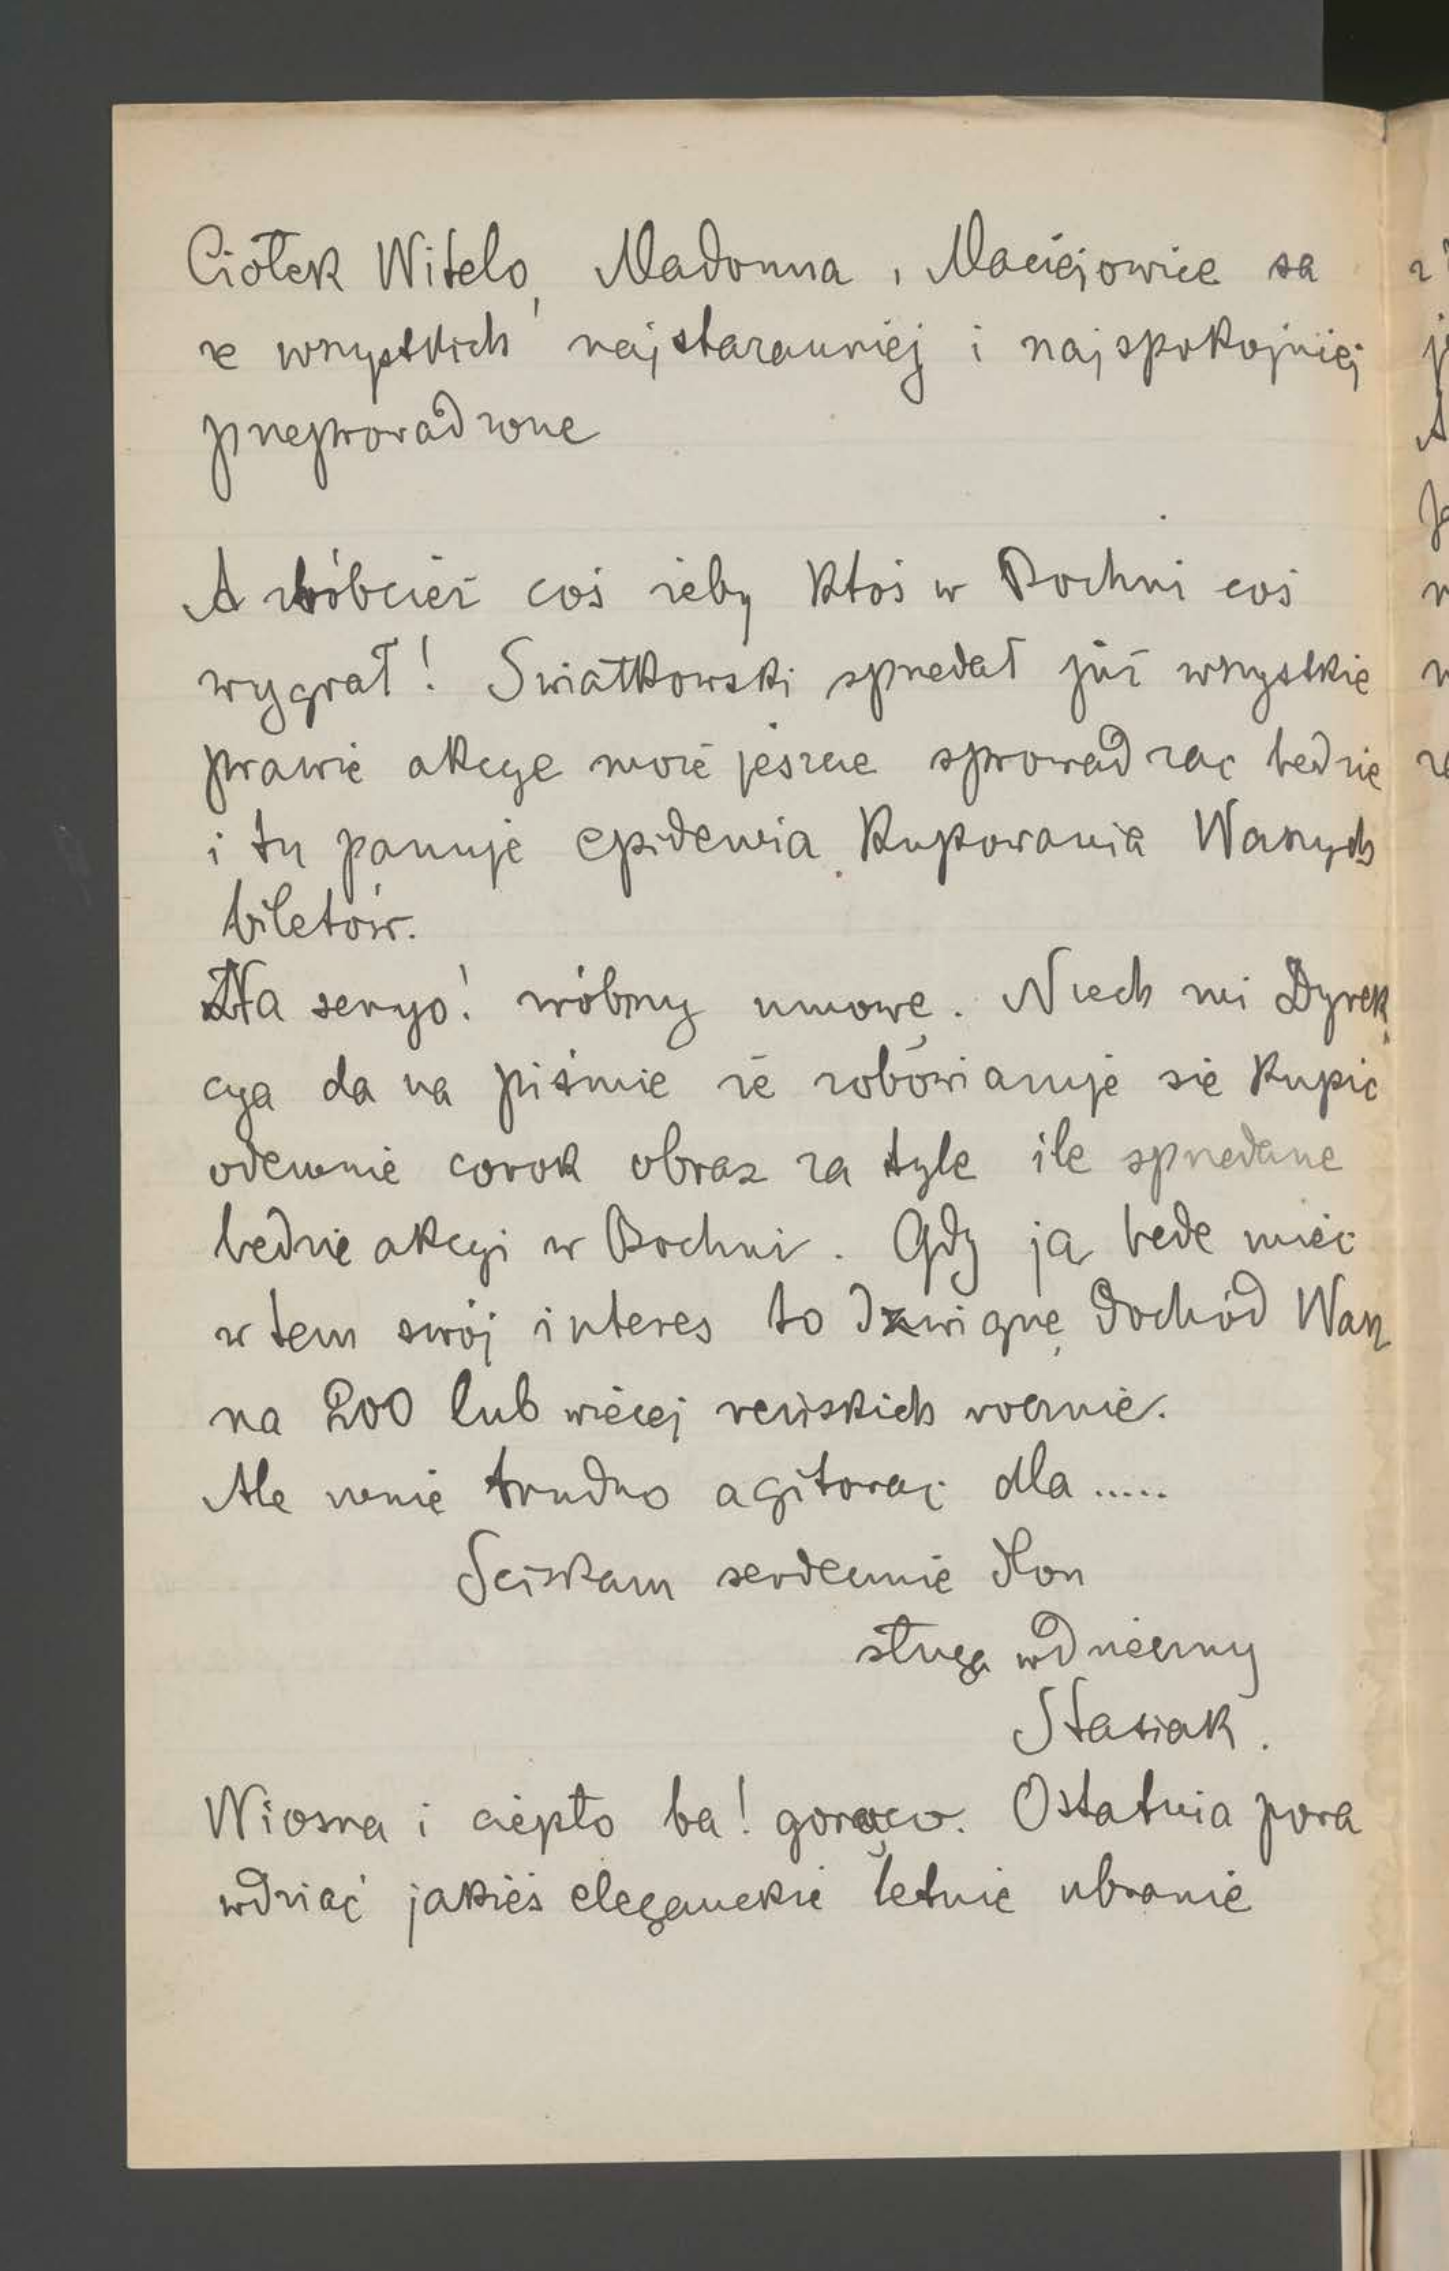 Ciołek Witelo, Madonna, Maciejowice sa
ze wszystkich najstaranniej i najspokojniej
przeprowadzone
A zróbcież coś żeby ktoś w Bochni coś
wygrał! Swiatkowski sprzedał już wszystkie
prawie akcye może jeszcze sprowadzac bedzie
i tu panuje epidemia kupowania Waszych
biletów.
Na seryo! zróbmy umowę. Niech mi Dyrek
cya da na piśmie że zobowianuje sie kupic
odemnie corok obraz za tyle ile sprzedane
bedzie akcyi w Bochni. Gdy ja bede mieć
w tem swój interes to dzwignę dochód Wasz
na 200 lub wiecej reńskich rocznie.
Ale mnie trudno agitorac dla .....
Sciskam serdecznie dłon
sługa wdzięczny
Stasiak.
Wiosna i ciepło ba! gorąco. Ostatnia pora
wdziać jakieś eleganckie letnie ubranie